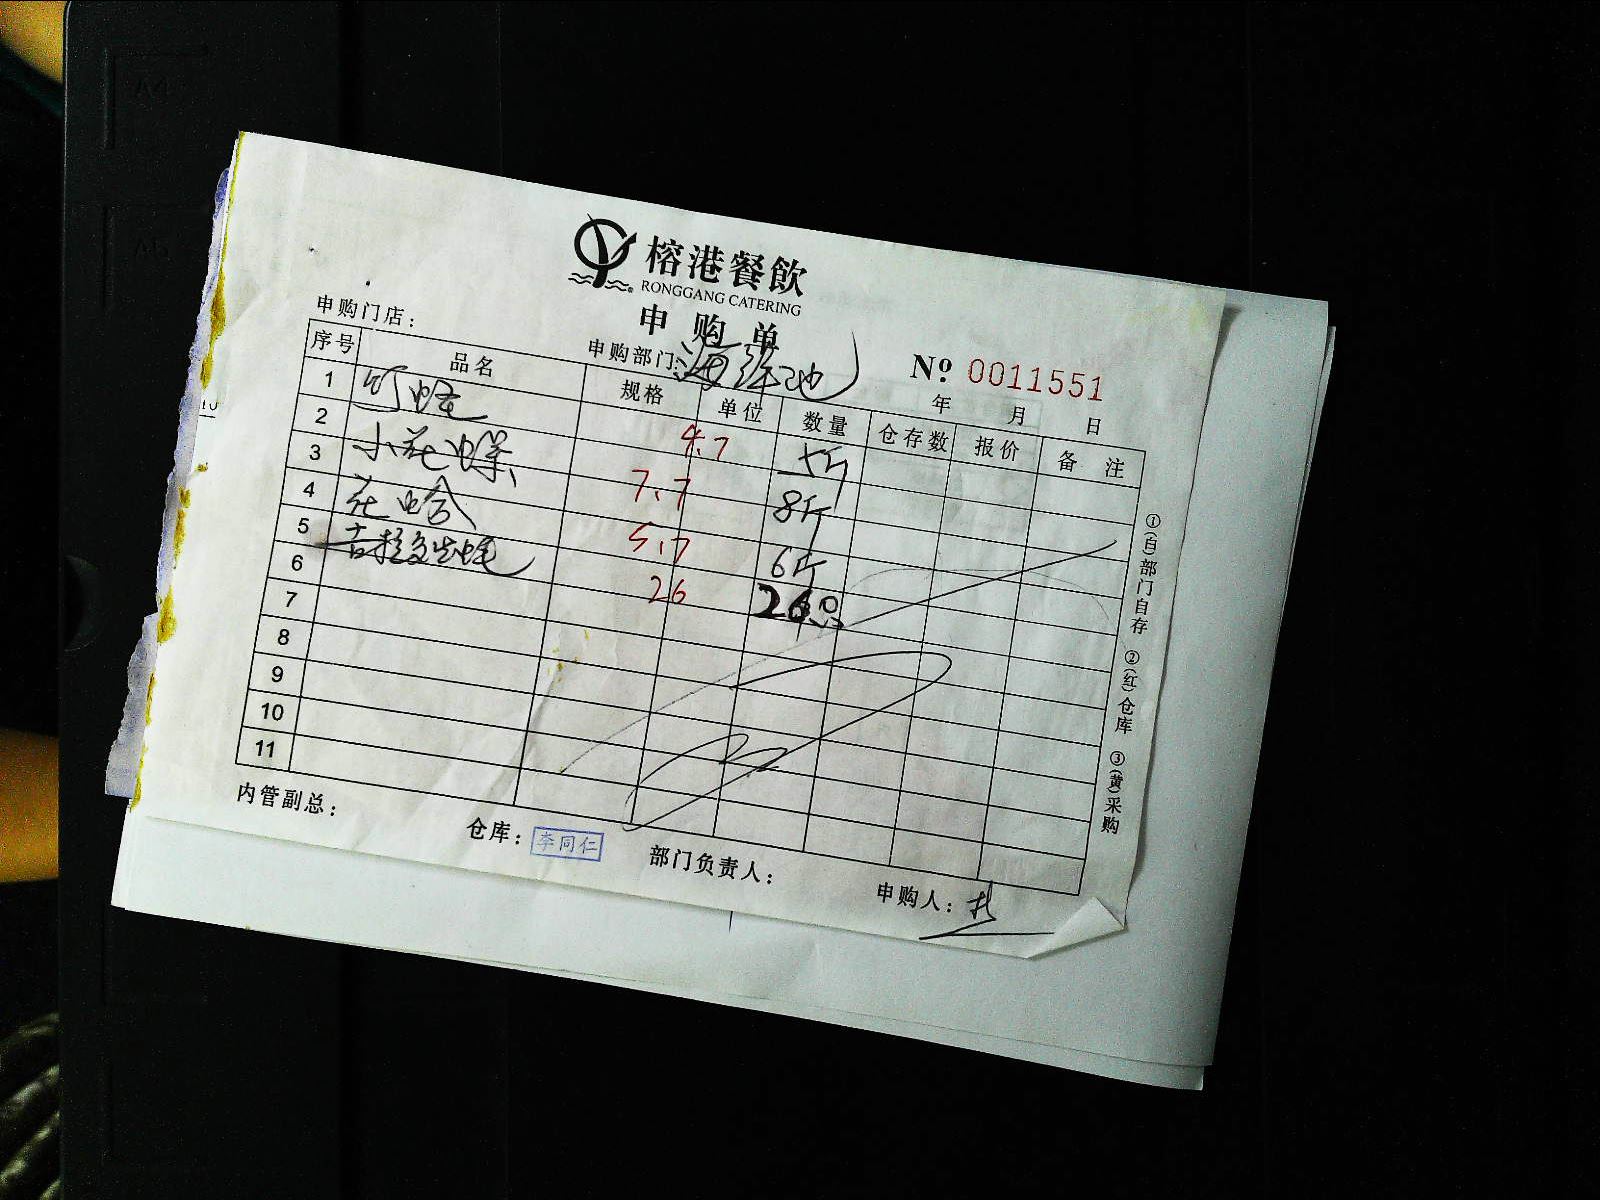 榕港餐飲
RONGGANG CATERING
申购单
申购门店：
申购部门：海鲜池
№ 0011551
年 月 日
序号 品名 规格 单位 数量 仓存数 报价 备注
1 竹蛏 4.7 5斤
2 小花螺 7.7 8斤
3 花蛤 5.7 6斤
4 吉拉多生蚝 26 26只
5
6
7
8
9
10
11
①(白)部门自存 ②(红)仓库 ③(黄)采购
内管副总：
仓库：李同仁
部门负责人：
申购人：
A4
A5